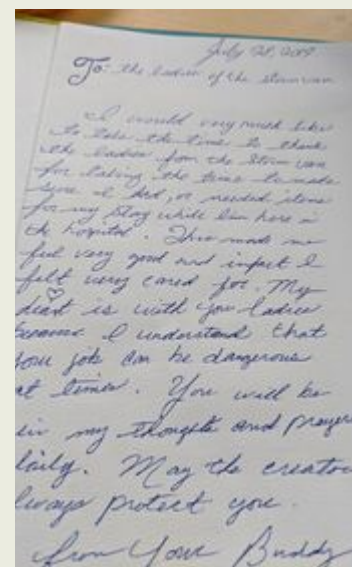 July 28, 2019
To: the ladies of the storm van
I would very much like
to take the time to thank
the ladies from the Storm van
for taking the time to made
sure I had, or needed items
for my stay while I'm here in
the hospital. This made me
feel very good and infact I
felt very cared for. My
heart is with you ladies
because I understand that
your job can be dangerous
at times. You will be
in my thoughts and prayers
daily. May the creator
always protect you.
from Your Buddy